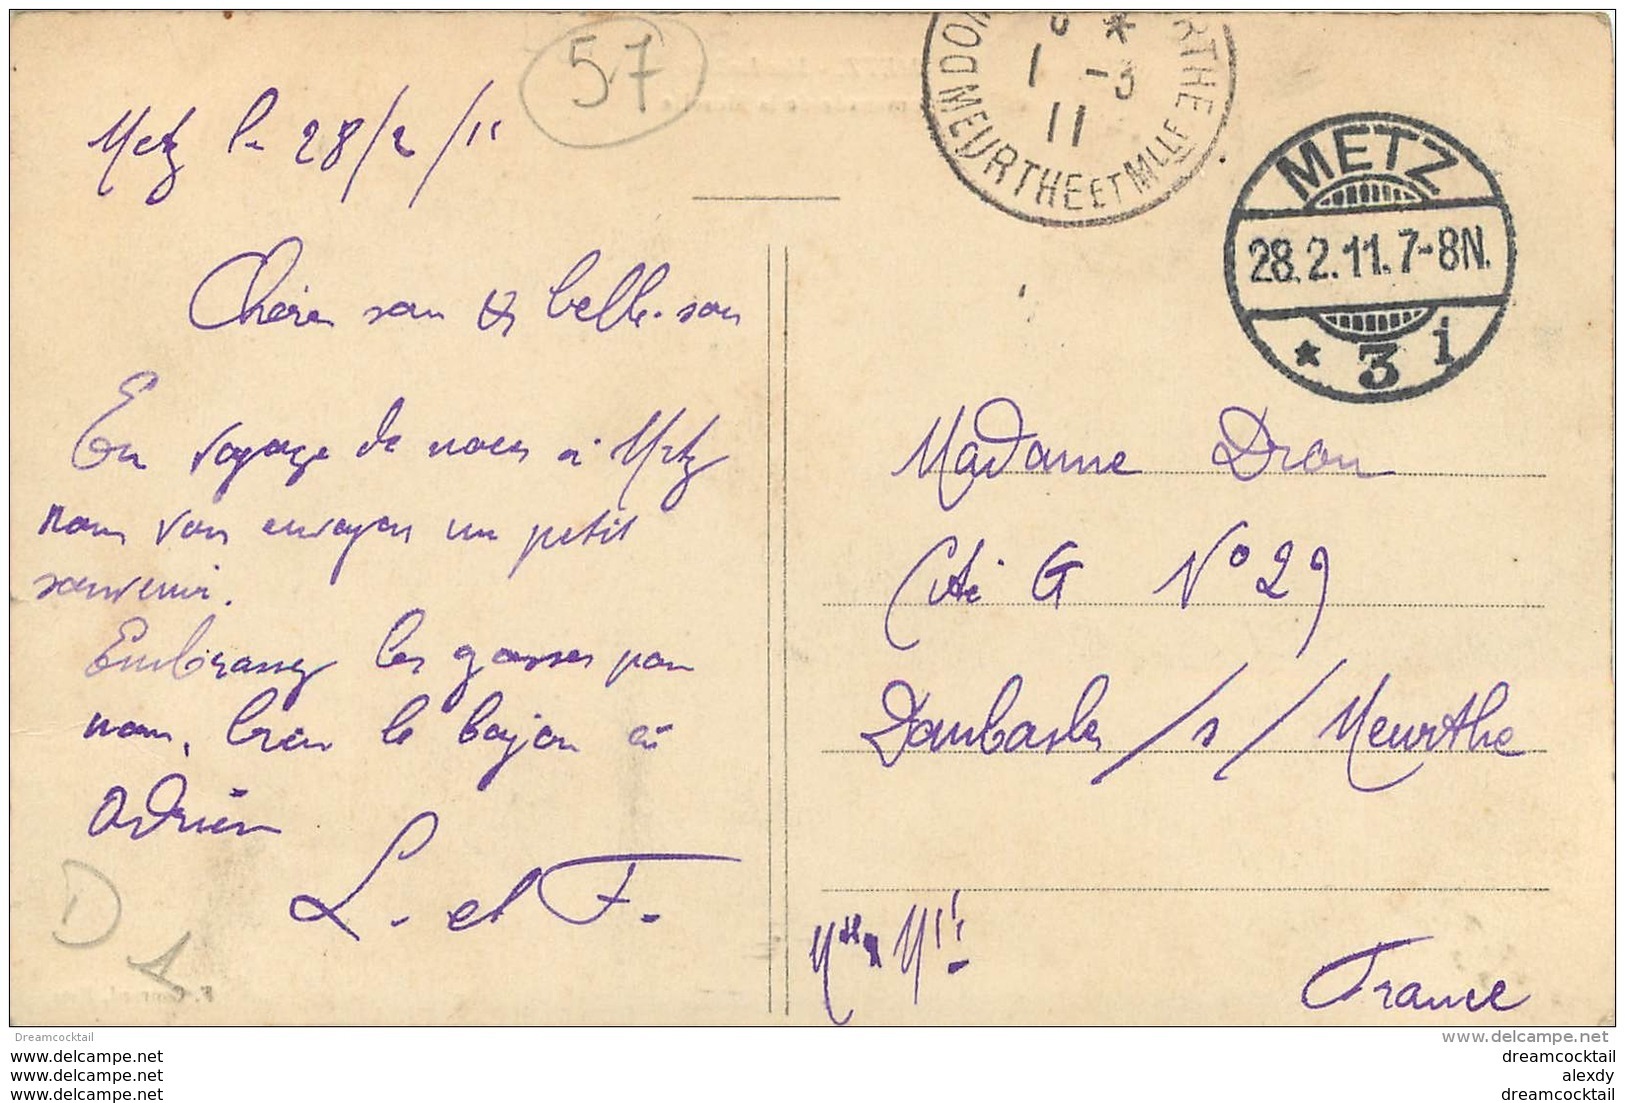 57
Metz le 28/2/11
Chère sœur & belle-sœur
En voyage de noces à Metz
nous vous envoyons un petit
souvenir.
Embrassez les gosses pour
nous, bien le bonjour à
Adrien
L. et F.
D
1
DOM MEURTHE ET MLLE
RTHE
* 
1 -3
11
METZ
28.2.11.7-8N.
* 3 i
Madame Dron
Cité G N° 29
Dombasle /s/ Meurthe
Mthe & Mlle
France
Dreamcocktail
www.delcampe.net
www.delcampe.net
www.delcampe.net
www.delcampe.net
dreamcocktail
alexdy
dreamcocktail